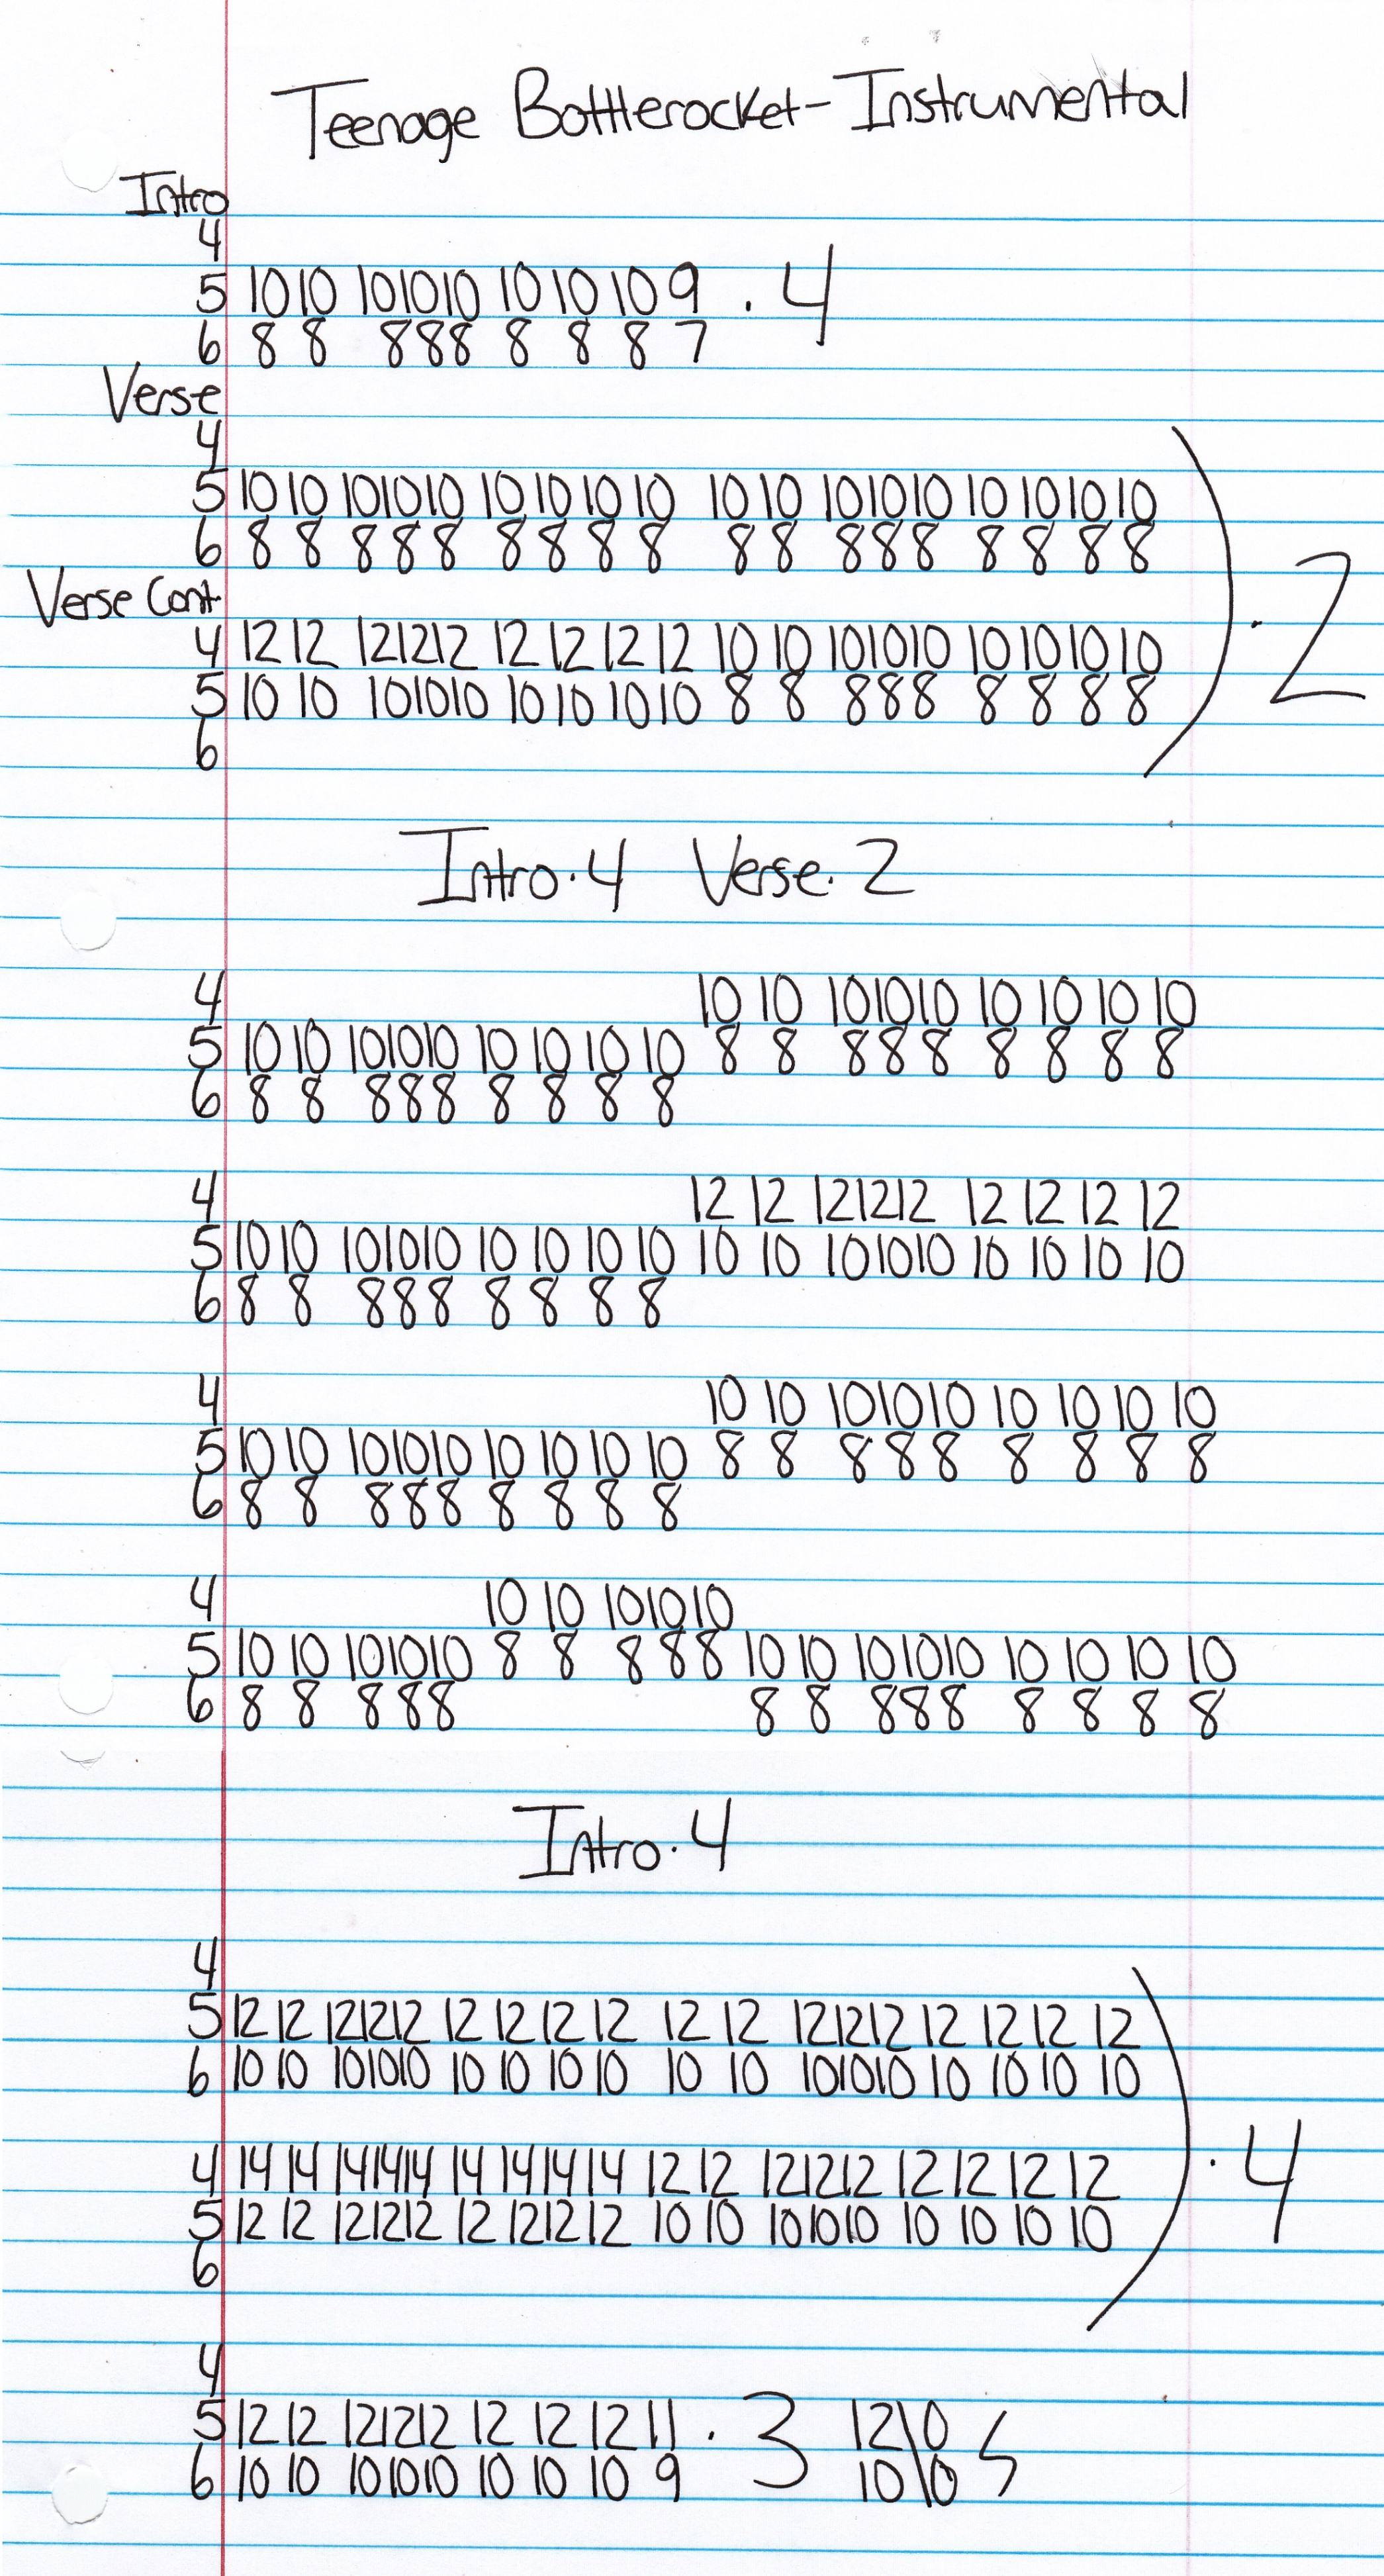 Teenage Bottlerocket - Instrumental
Intro
4
5 10 10 10 10 10 10 10 10 9 . 4
6 8 8 8 8 8 8 8 8 7
Verse
4
5 10 10 10 10 10 10 10 10 10 10 10 10 10 10 10 10 10 10
6 8 8 8 8 8 8 8 8 8 8 8 8 8 8 8 8 8 8
) . 2
Verse Cont.
4 12 12 12 12 12 12 12 12 12 10 10 10 10 10 10 10 10 10
5 10 10 10 10 10 10 10 10 10 8 8 8 8 8 8 8 8 8
6
Intro . 4 Verse . 2
4 10 10 10 10 10 10 10 10 10
5 10 10 10 10 10 10 10 10 10 8 8 8 8 8 8 8 8 8
6 8 8 8 8 8 8 8 8 8
4 12 12 12 12 12 12 12 12 12
5 10 10 10 10 10 10 10 10 10 10 10 10 10 10 10 10 10 10
6 8 8 8 8 8 8 8 8 8
4 10 10 10 10 10 10 10 10 10
5 10 10 10 10 10 10 10 10 10 8 8 8 8 8 8 8 8 8
6 8 8 8 8 8 8 8 8 8
4 10 10 10 10 10
5 10 10 10 10 10 8 8 8 8 8 10 10 10 10 10 10 10 10 10
6 8 8 8 8 8 8 8 8 8 8 8 8 8 8
Intro . 4
4
5 12 12 12 12 12 12 12 12 12 12 12 12 12 12 12 12 12 12
6 10 10 10 10 10 10 10 10 10 10 10 10 10 10 10 10 10 10
) . 4
4 14 14 14 14 14 14 14 14 14 12 12 12 12 12 12 12 12 12
5 12 12 12 12 12 12 12 12 12 10 10 10 10 10 10 10 10 10
6
4
5 12 12 12 12 12 12 12 12 11 . 3 12\0
6 10 10 10 10 10 10 10 10 9 10\0